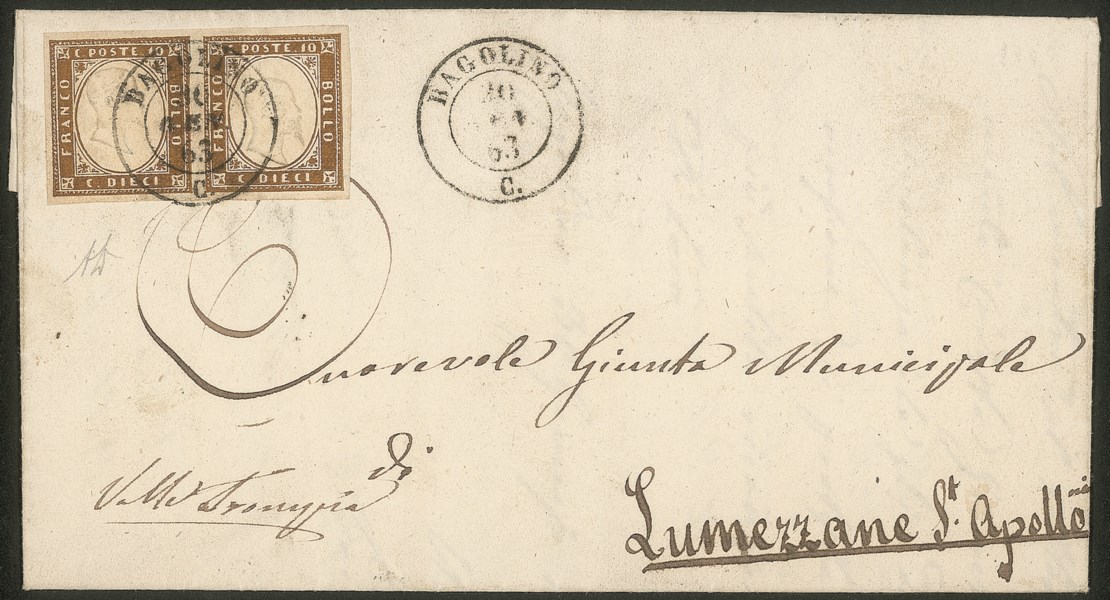 C. POSTE. 10
FRANCO
BOLLO
C. DIECI
C. POSTE. 10
FRANCO
BOLLO
C. DIECI
BAGOLINO
63
C.
BAGOLINO
20
63
C.
Onorevole Giunta Municipale
di
Valle Trompia
Lumezzane St. Apollonio